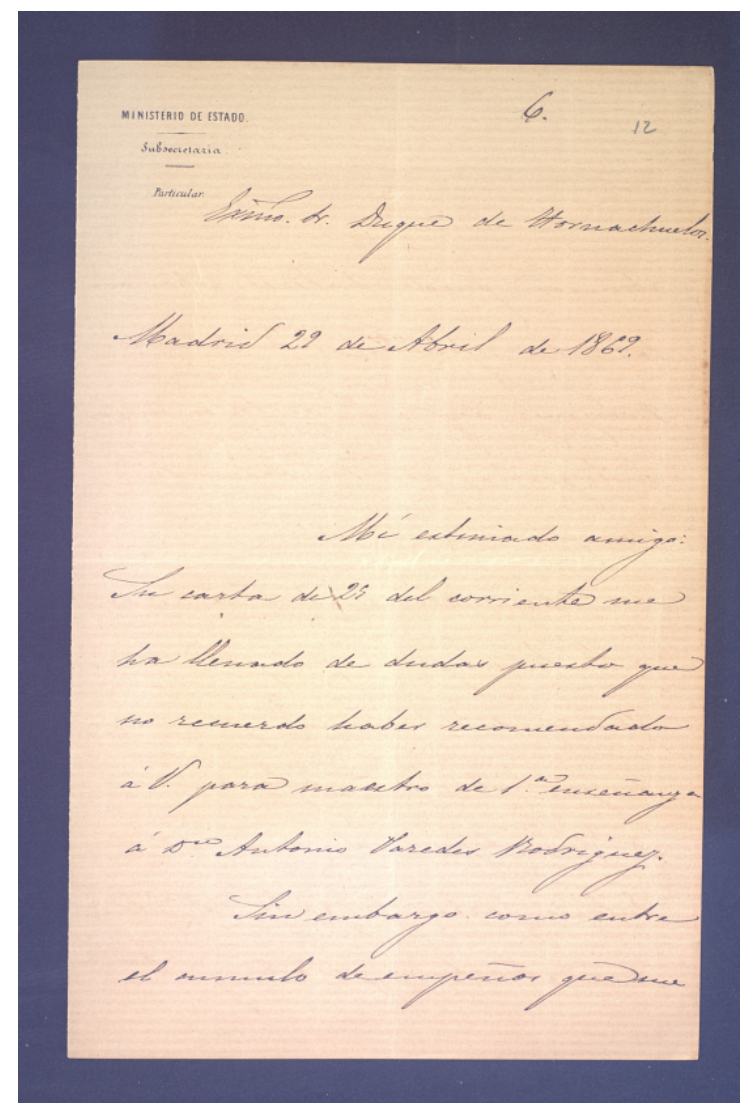 MINISTERIO DE ESTADO.
6.
12
Subsecretaria.
Particular.
Exmo. Sr. Duque de Hornachuelos.
Madrid 29 de Abril de 1869.
Mi estimado amigo:
Su carta de 25 del corriente me
ha llenado de dudas puesto que
no recuerdo haber recomendado
á V. para maestro de 1.ª enseñanza
á Dn Antonio Paredes Rodriguez.
Sin embargo como entre
el cumulo de empeños que me